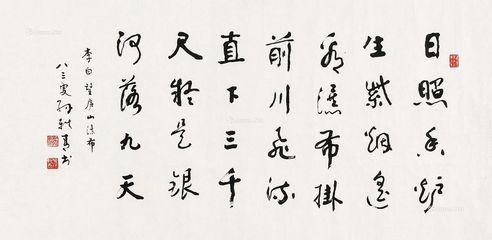 日照香炉
生紫烟遥
看瀑布掛
前川飛流
直下三千
尺疑是銀
河落九天
李白望庐山瀑布
八三叟孙轶青书